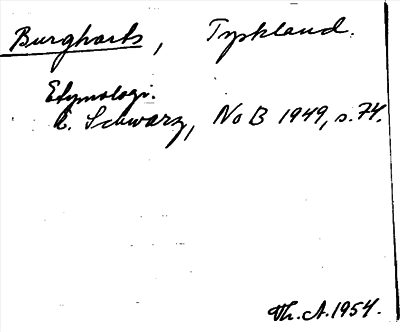 Burghorts, Tyskland.
Etymologi.
E. Schwarz, NoB 1949, s. 74.
Th. A. 1954.